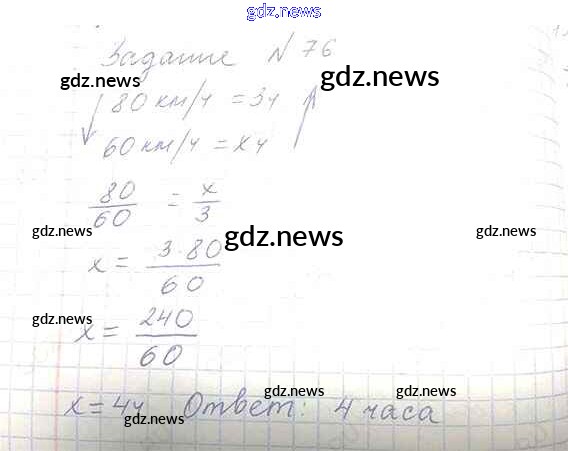 gdz.news
Задание N 76
gdz.news
80 км/ч = 3ч
60 км/ч = x ч
80/60 = x/3
gdz.news gdz.news gdz.news
x = 3·80/60
gdz.news
x = 240/60
gdz.news gdz.news
x = 4ч Ответ: 4 часа
gdz.news